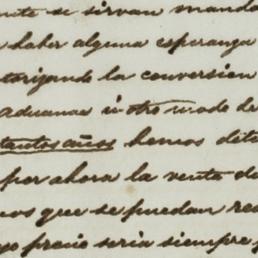 nte se sirvan manda
haber alguna esperanza
torizando la conversion
Aduanas ú otro modo de
tantos años hemos dete
por ahora la venta d
nos que se puedan rea
yo precio seria siempre